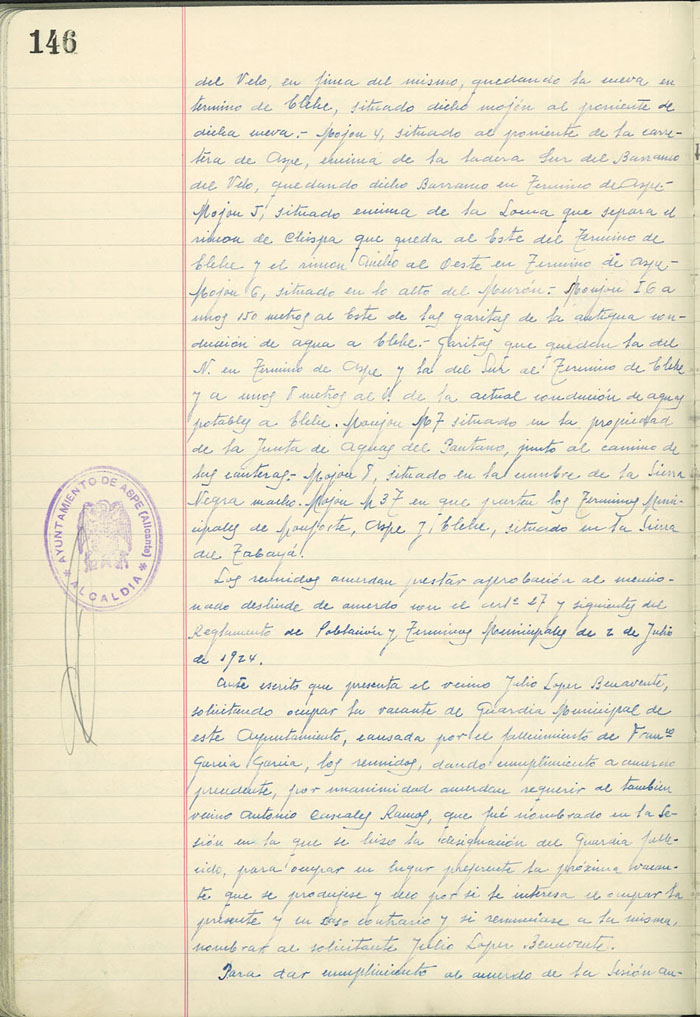 146
del Velo, en finca del mismo, quedando la cueva en
termino de Elche, situado dicho mojón al poniente de
dicha cueva.- Mojon 4, situado al poniente de la carre-
tera de Aspe, encima de la ladera Sur del Barranco
del Velo, quedando dicho Barranco en Termino de Aspe-
Mojon 5, situado encima de la Loma que separa el
rincon de Chispa que queda al Este del Termino de
Elche y el rincon al Oeste en Termino de Aspe-
Mojon 6, situado en lo alto del Murón.- Monjon I6 a
unos 150 metros al Este de las garitas de la antigua con-
ducción de agua a Elche.- Garitas que quedan la del
N. en Termino de Aspe y la del Sur al Termino de Elche
y a unos 8 metros al de la actual condución de aguas
potables a Elche. Monjon M7 situado en la propiedad
de la Junta de Aguas del Pantano, junto al camino de
las canteras.- Mojon 8, situado en la cumbre de la Sierra
Negra macho. Mojon M37 en que parten los Terminos Muni-
cipales de Monforte, Aspe y Elche, situado en la Sierra
del Tabayá.
Los reunidos acuerdan prestar aprobación al mencio-
nado deslinde de acuerdo con el artº 27 y siguientes del
Reglamento de Población y Terminos Municipales de 2 de Julio
de 1924.
Ante escrito que presenta el vecino Julio Lopez Benavente,
solicitando ocupar la vacante de Guardia Municipal de
este Ayuntamiento, causada por el fallecimiento de Franco
Garcia Garcia, los reunidos, dando cumplimiento a acuerdo
precedente, por unanimidad acuerdan requerir al tambien
vecino Antonio Cascales Ramos, que fué nombrado en la Se-
sión en la que se hizo la designación del Guardia falle-
cido, para ocupar en lugar preferente la próxima vacan-
te que se produjese y ello por si le interesa el ocupar la
presente y en caso contrario y si renunciase a la misma,
nombrar al solicitante Julio Lopez Benavente.
Para dar cumplimiento al acuerdo de la Sesión an-
AYUNTAMIENTO DE ASPE (Alicante)
* ALCALDIA *